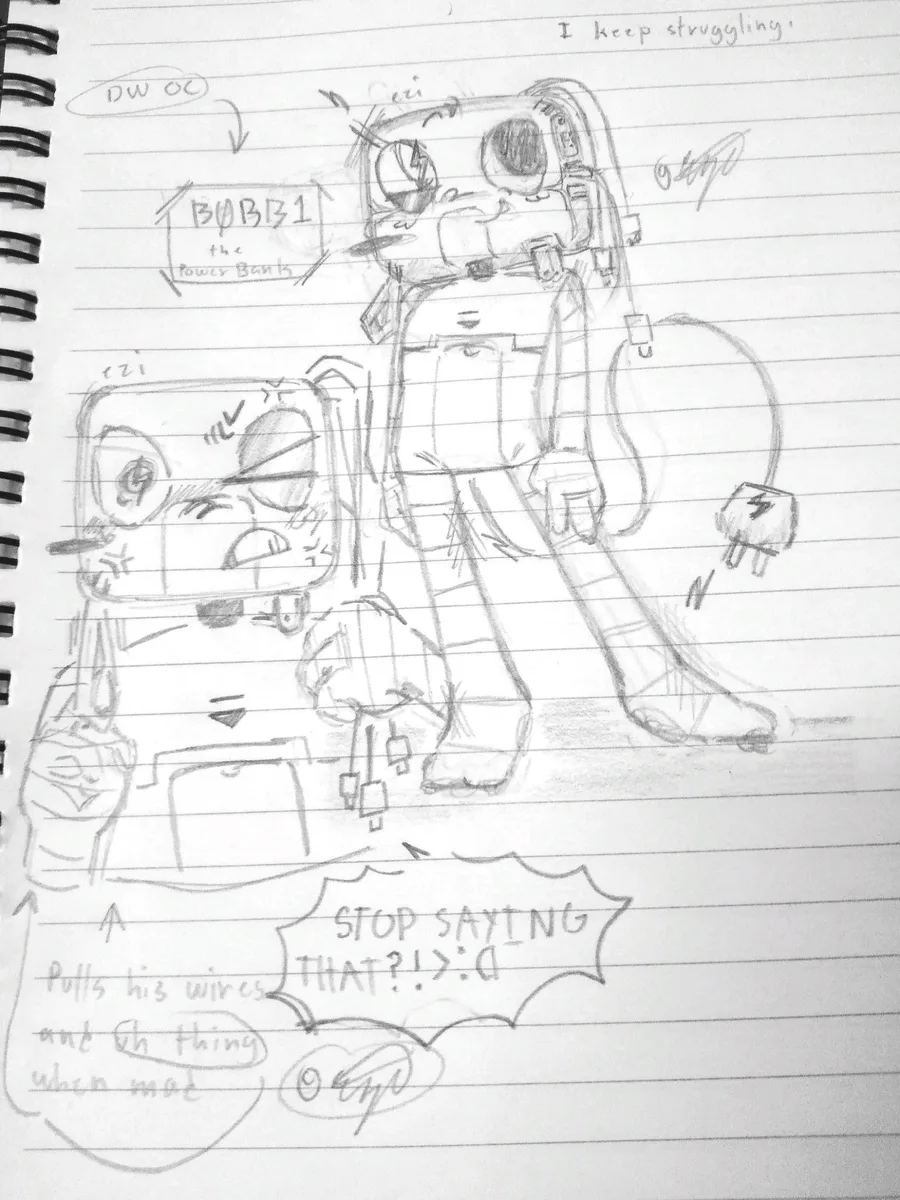 I keep struggling.
DW OC
ezi
BØBB1
the
Power Bank
ezi
STOP SAYING
THAT?!>:C
Pulls his wires
and uh thing
when mad